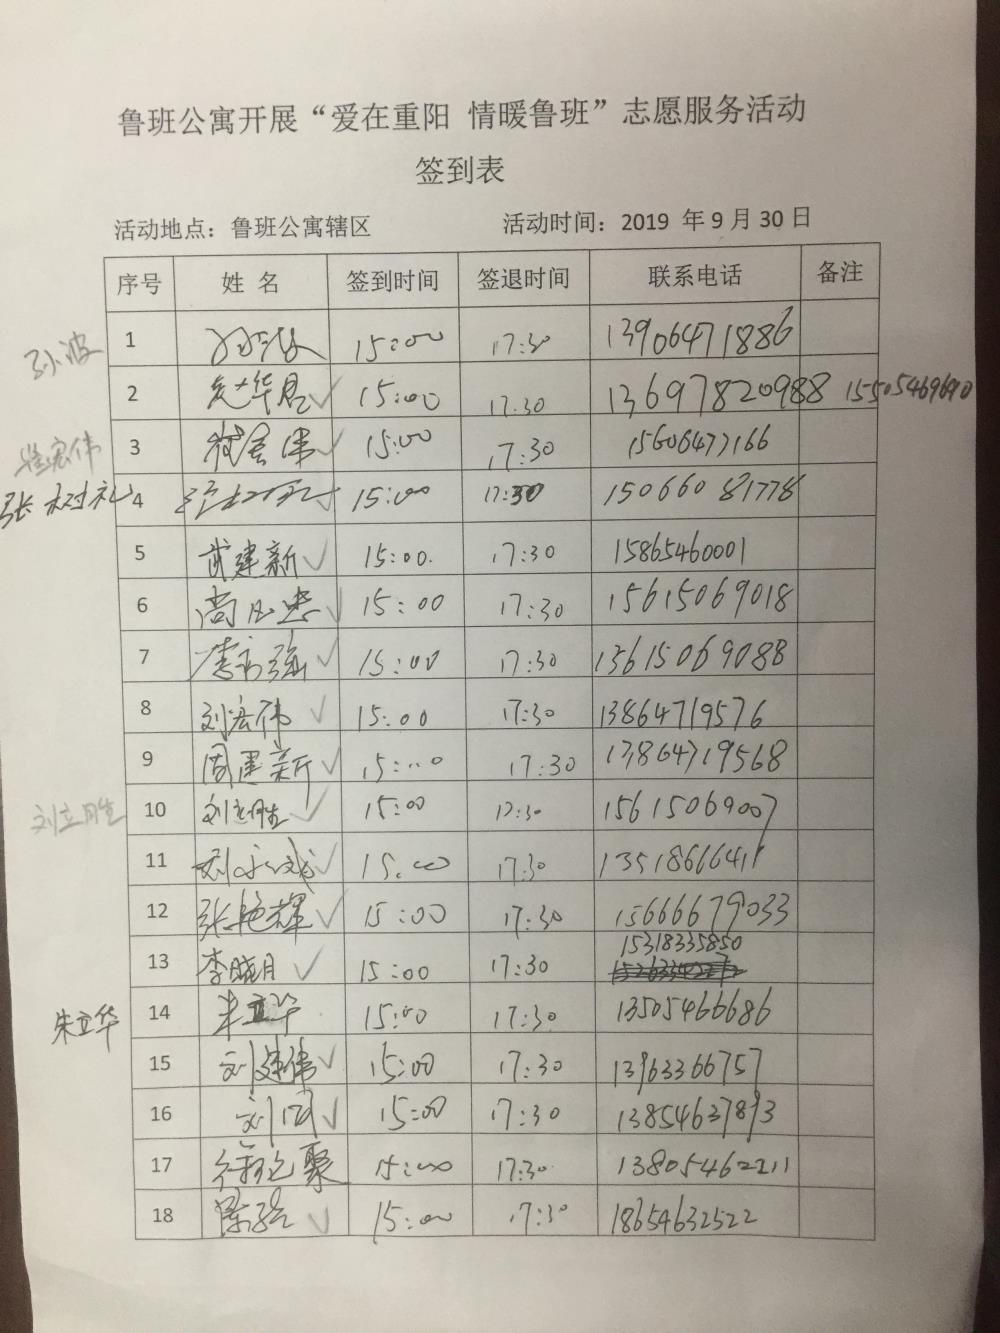 鲁班公寓开展“爱在重阳 情暖鲁班”志愿服务活动
签到表
活动地点：鲁班公寓辖区 活动时间：2019 年 9 月 30 日
序号 姓 名 签到时间 签退时间 联系电话 备注
孙波 1 15:00 17:30 13906471886
2 15:00 17:30 13697820988 15505469690
崔宏伟 3 15:00 17:30 15606477166
张树礼 4 15:00 17:30 15066081778
5 武建新 15:00. 17:30 15865460001
6 15:00 17:30 15615069018
7 15:00 17:30 15615069088
8 刘宏伟 15:00 17:30 13864719576
9 周建新 15:00 17:30 13864719568
刘立胜 10 刘立胜 15:00 17:30 15615069007
11 15:00 17:30 13518666411
12 张艳辉 15:00 17:30 15666679033
13 李晓月 15:00 17:30 15318335850
朱立华 14 朱立华 15:00 17:30 13505466686
15 刘建伟 15:00 17:30 13963366757
16 15:00 17:30 13854637893
17 15:00 17:30 13805462211
18 15:00 17:30 18654632522